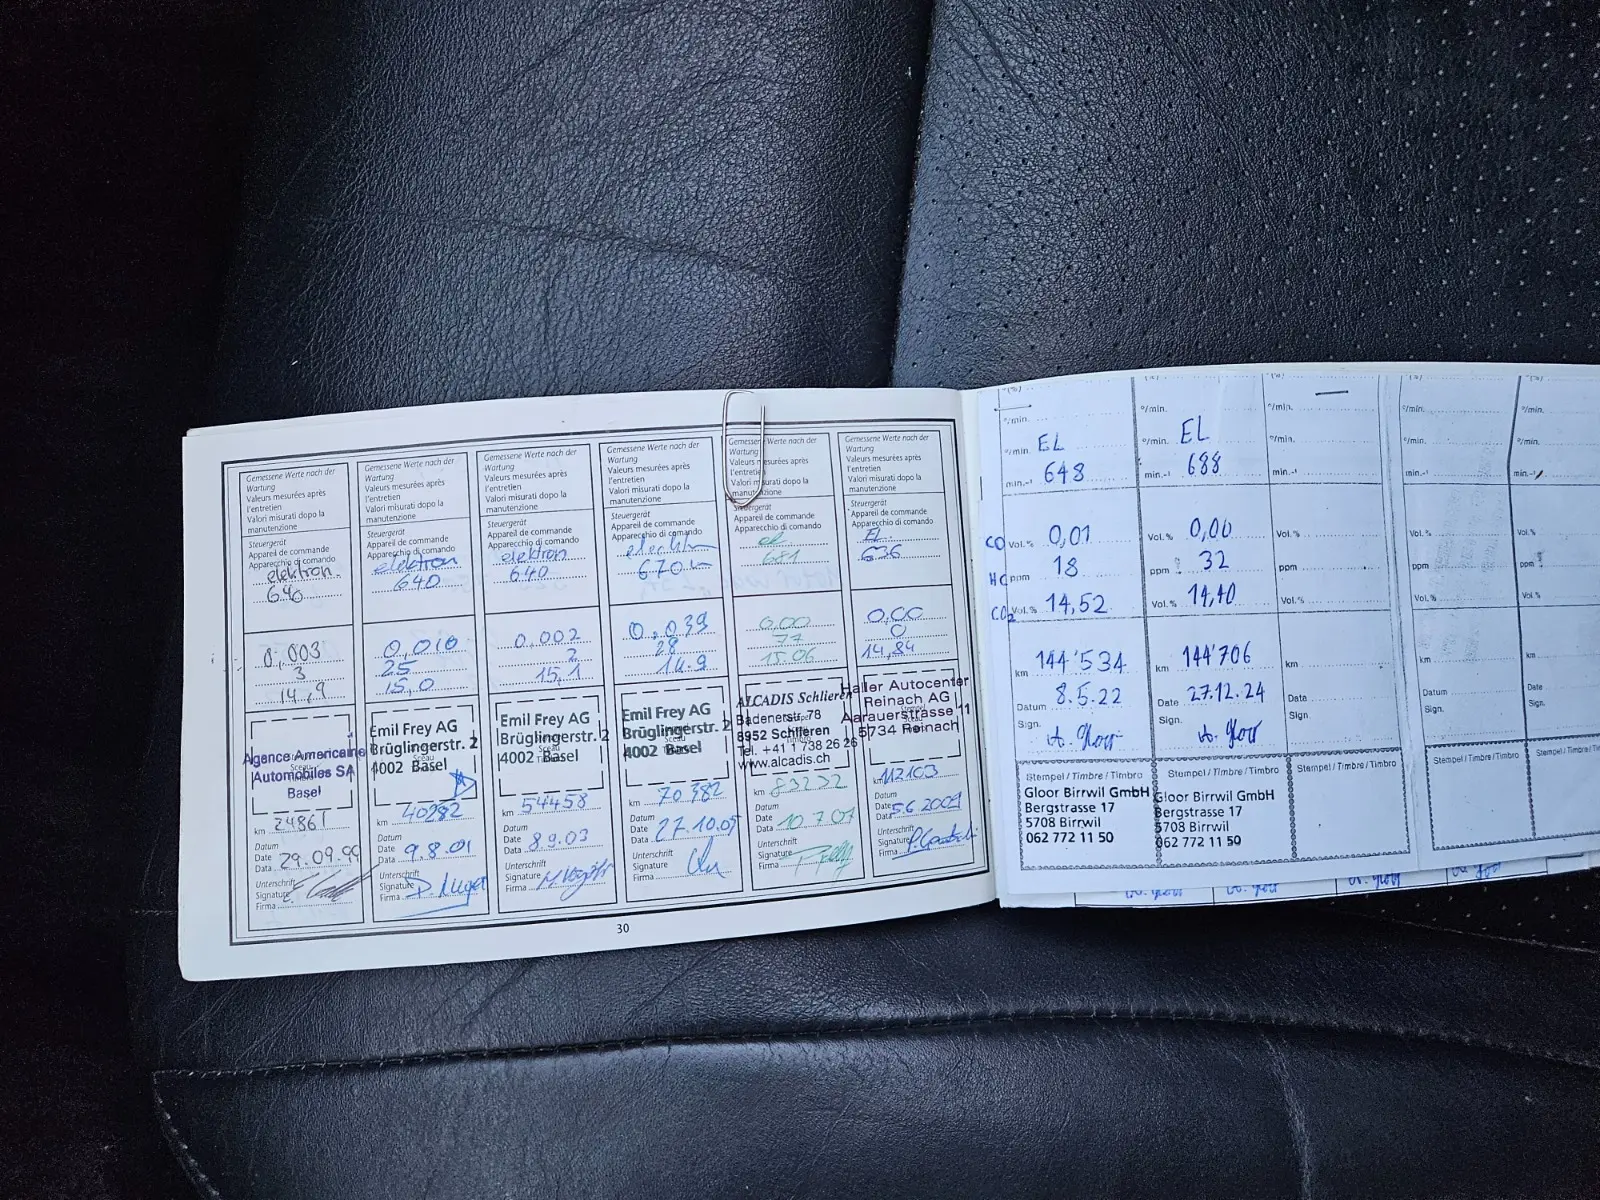 Gemessene Werte nach der
Wartung
Valeurs mesurées après
l'entretien
Valori misurati dopo la
manutenzione
Steuergerät
Appareil de commande
Apparecchio di comando
elektron.
640
0,003
3
14,9
Agence Americaine
Automobiles SA
Basel
km 24861
Datum
Date 29.09.99
Data
Unterschrift
Signature
Firma
Gemessene Werte nach der
Wartung
Valeurs mesurées après
l'entretien
Valori misurati dopo la
manutenzione
Steuergerät
Appareil de commande
Apparecchio di comando
elektron
640
0,010
25
15,0
Emil Frey AG
Brüglingerstr. 2
4002 Basel
km 40282
Datum
Date 9.8.01
Data
Unterschrift
Signature
Firma
Gemessene Werte nach der
Wartung
Valeurs mesurées après
l'entretien
Valori misurati dopo la
manutenzione
Steuergerät
Appareil de commande
Apparecchio di comando
elektron
640
0,002
2
15,1
Emil Frey AG
Brüglingerstr. 2
4002 Basel
km 54458
Datum
Date 8.9.03
Data
Unterschrift
Signature
Firma
Gemessene Werte nach der
Wartung
Valeurs mesurées après
l'entretien
Valori misurati dopo la
manutenzione
Steuergerät
Appareil de commande
Apparecchio di comando
670
0,039
28
14.9
Emil Frey AG
Brüglingerstr. 2
4002 Basel
km 70382
Datum
Date 27.10.05
Data
Unterschrift
Signature
Firma
Gemessene Werte nach der
Wartung
Valeurs mesurées après
l'entretien
Valori misurati dopo la
manutenzione
Steuergerät
Appareil de commande
Apparecchio di comando
el
681
0.00
77
15.06
ALCADIS Schlieren
Badenerstr. 78
8952 Schlieren
Tel. +41 1 738 26 26
www.alcadis.ch
km 83232
Datum
Date 10.7.07
Data
Unterschrift
Signature
Firma
Gemessene Werte nach der
Wartung
Valeurs mesurées après
l'entretien
Valori misurati dopo la
manutenzione
Steuergerät
Appareil de commande
Apparecchio di comando
EL.
636
0,00
0
14,84
Haller Autocenter
Reinach AG
Aarauerstrasse 11
5734 Reinach
km 112103
Datum
Date 5.6.2009
Data
Unterschrift
Signature
Firma
30
°/min.
°/min. EL
min.-¹ 648
CO Vol.% 0,01
HC ppm 18
CO2 Vol.% 14,52
km 144'534
Datum 8.5.22
Sign. A. Gloor
Stempel / Timbre / Timbro
Gloor Birrwil GmbH
Bergstrasse 17
5708 Birrwil
062 772 11 50
°/min.
°/min. EL
min.-¹ 688
Vol.% 0,00
ppm 32
Vol.% 14,40
km 144'706
Date 27.12.24
Sign. A. Gloor
Stempel / Timbre / Timbro
Gloor Birrwil GmbH
Bergstrasse 17
5708 Birrwil
062 772 11 50
°/min.
°/min.
min.-¹
Vol.%
ppm
Vol.%
km
Date
Sign.
Stempel / Timbre / Timbro
°/min.
°/min.
min.-¹
Vol.%
ppm
Vol.%
km
Datum
Sign.
Stempel / Timbre / Timbro
°/min.
°/min.
min.-¹
Vol.%
ppm
Vol.%
km
Date
Sign.